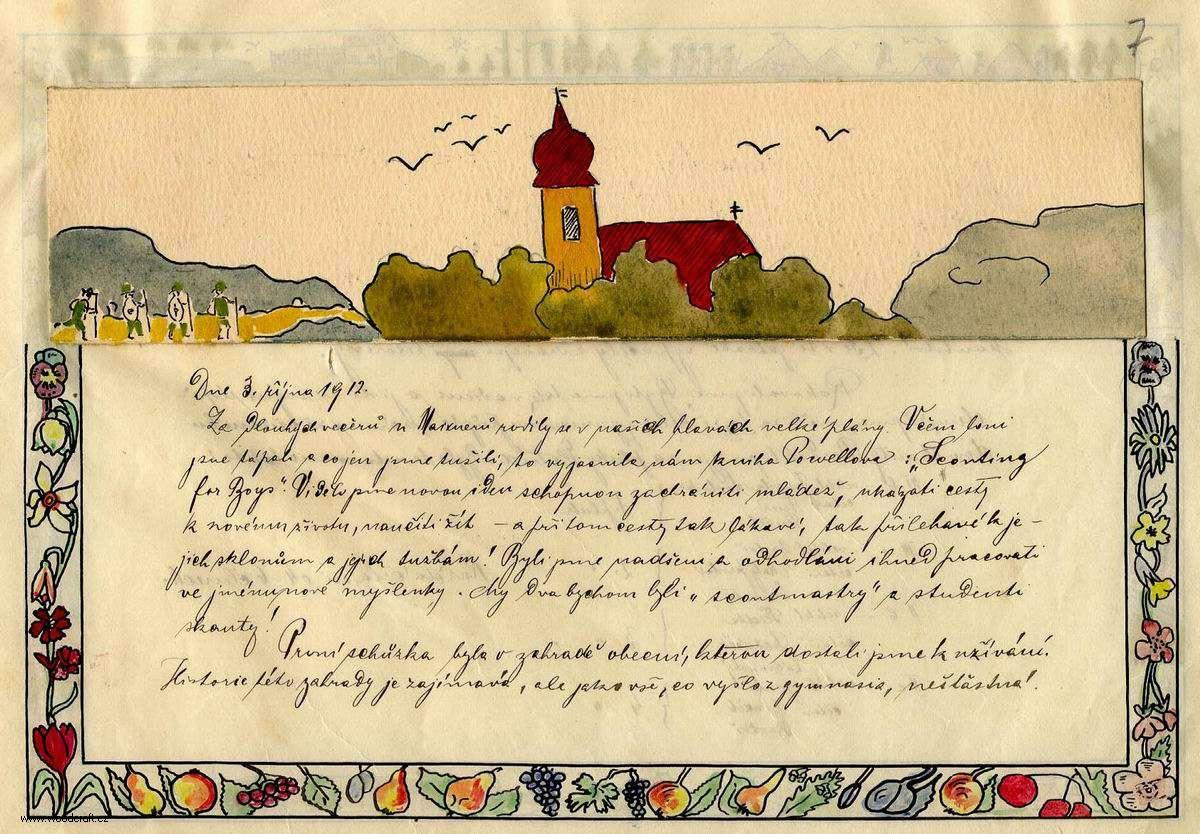 7
Dne 3. října 1912.
Za dlouhých večerů u Maixnerů rodily se v našich hlavách velké plány. V čem loni
jsme tápali a co jen jsme tušili, to vyjasnila nám kniha Powellova: „Scouting
for Boys". Viděli jsme novou ideu schopnou zachrániti mládež, ukázati cesty
k novému životu, naučiti žít – a při tom cesty tak lákavé, tak přilehavé k je-
jich sklonům a jejich tužbám! Byli jsme nadšeni a odhodláni ihned pracovati
ve jménu nové myšlenky. My dva bychom byli „scoutmastry" a studenti
skauty!
První schůzka byla v zahradě obecní, kterou dostali jsme k užívání.
Historie této zahrady je zajímavá, ale jako vše, co vyšlo z gymnasia, nešťastná!
www.woodcraft.cz